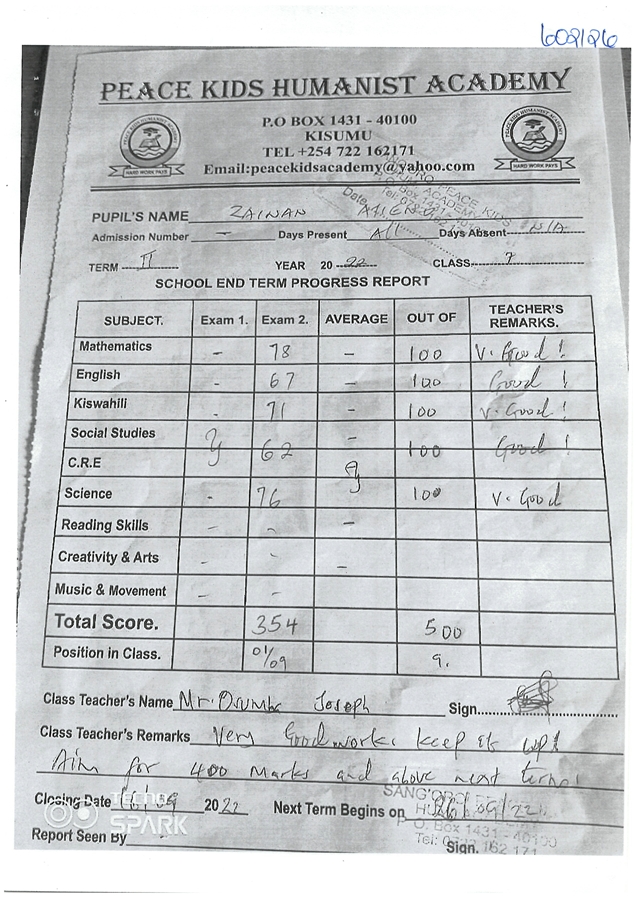 602126
PEACE KIDS HUMANIST ACADEMY
P.O BOX 1431 - 40100
KISUMU
TEL +254 722 162171
Email:peacekidsacademy@yahoo.com
PEACE KIDS HUMANIST ACADEMY
HARD WORK PAYS
PEACE KIDS HUMANIST ACADEMY
HARD WORK PAYS
PUPIL'S NAME ZAINAN
Admission Number - Days Present All Days Absent N/A
TERM II YEAR 2022 CLASS 7
SCHOOL END TERM PROGRESS REPORT
SUBJECT. Exam 1. Exam 2. AVERAGE OUT OF TEACHER'S REMARKS.
Mathematics - 78 - 100 V. Good!
English - 67 - 100 Good!
Kiswahili - 71 - 100 V. Good!
Social Studies 62 - 100 Good!
C.R.E
Science - 76 100 V. Good
Reading Skills - - -
Creativity & Arts - - -
Music & Movement - -
Total Score. 354 500
Position in Class. 01/09 9.
Class Teacher's Name Mr. Joseph Sign.
Class Teacher's Remarks Very Good work. keep it up!
Aim for 400 Marks and above next term!
Closing Date 2022 Next Term Begins on
Report Seen By Sign.
P.O. Box 1431 - 40100
SPARK